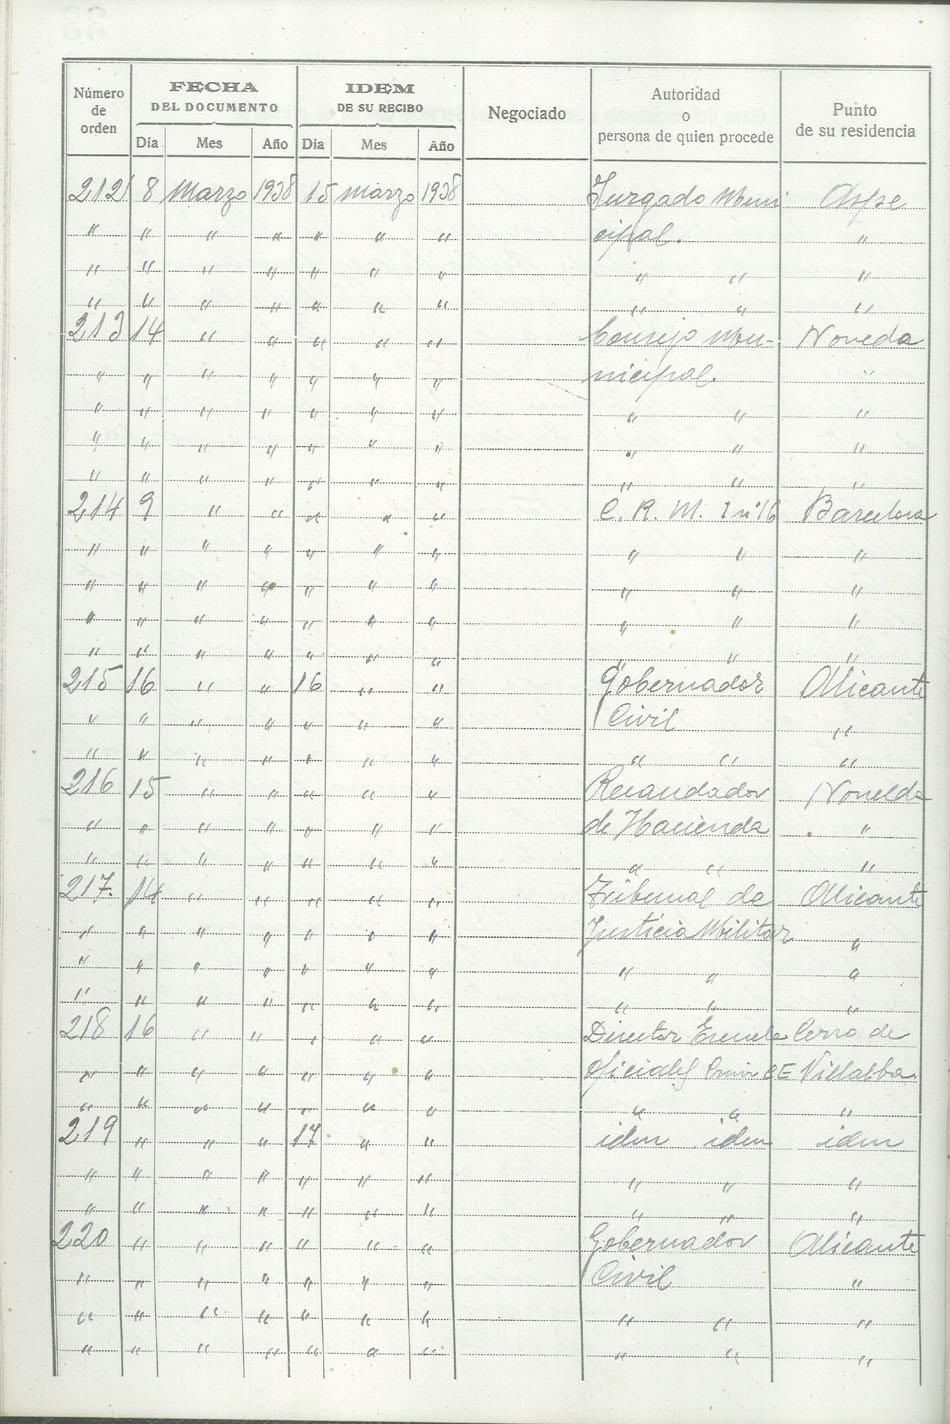 Número de orden | FECHA DEL DOCUMENTO | IDEM DE SU RECIBO | Negociado | Autoridad o persona de quien procede | Punto de su residencia
Día | Mes | Año | Día | Mes | Año
212 8 Marzo 1938 15 marzo 1938 Juzgado Muni Aspe
" " " " " " " cipal. "
" " " " " " " " " "
" " " " " " " " " "
213 14 " " " " " Consejo Mu- Noveda
" " " " " " " nicipal. "
" " " " " " " " " "
" " " " " " " " " "
" " " " " " " " " "
214 9 " " " " " C. R. M. I nº 16 Barcelona
" " " " " " " " " "
" " " " " " " " " "
" " " " " " " " " "
" " " " " " " " " "
215 16 " " 16 " " Gobernador Alicante
" " " " " " " Civil "
" " " " " " " " " "
216 15 " " " " " Recaudador Novelda
" " " " " " " de Hacienda "
" " " " " " " " " "
217. 14 " " " " " Tribunal de Alicante
" " " " " " " Justicia Militar "
" " " " " " " " " "
" " " " " " " " " "
218 16 " " " " " Director Escuela Cerro de
" " " " " " " CE Villalba
" " " " " " " " " "
219 " " " 17 " " idem idem idem
" " " " " " " " " "
" " " " " " " " " "
220 " " " " " " Gobernador Alicante
" " " " " " " Civil "
" " " " " " " " " "
" " " " " " " " " "